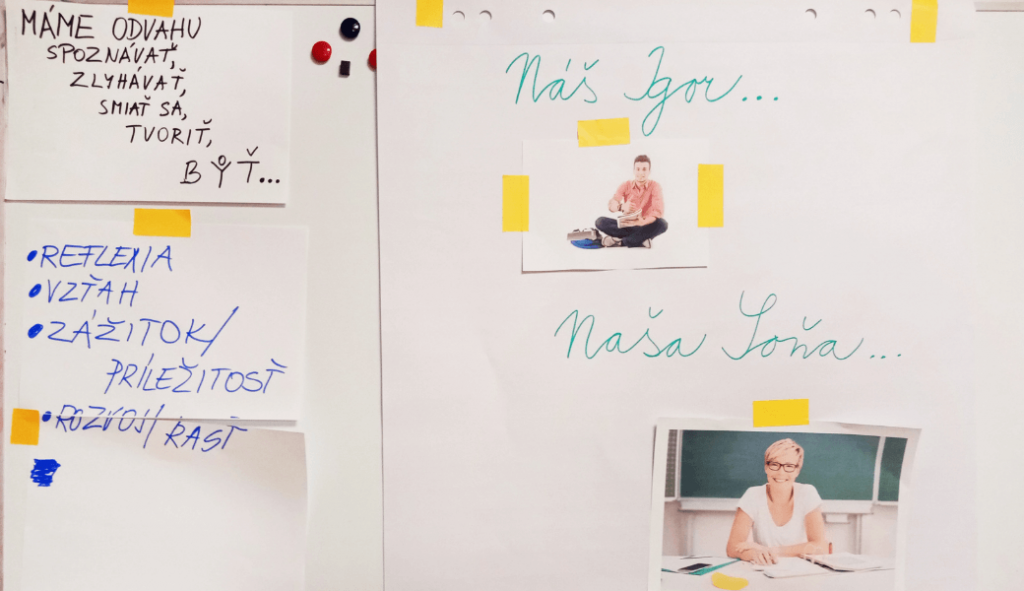 MÁME ODVAHU
SPOZNÁVAŤ,
ZLYHÁVAŤ,
SMIAŤ SA,
TVORIŤ,
BYŤ...
• REFLEXIA
• VZŤAH
• ZÁŽITOK/
PRÍLEŽITOSŤ
• ROZVOJ/RASŤ
Náš Igor...
Naša Soňa...